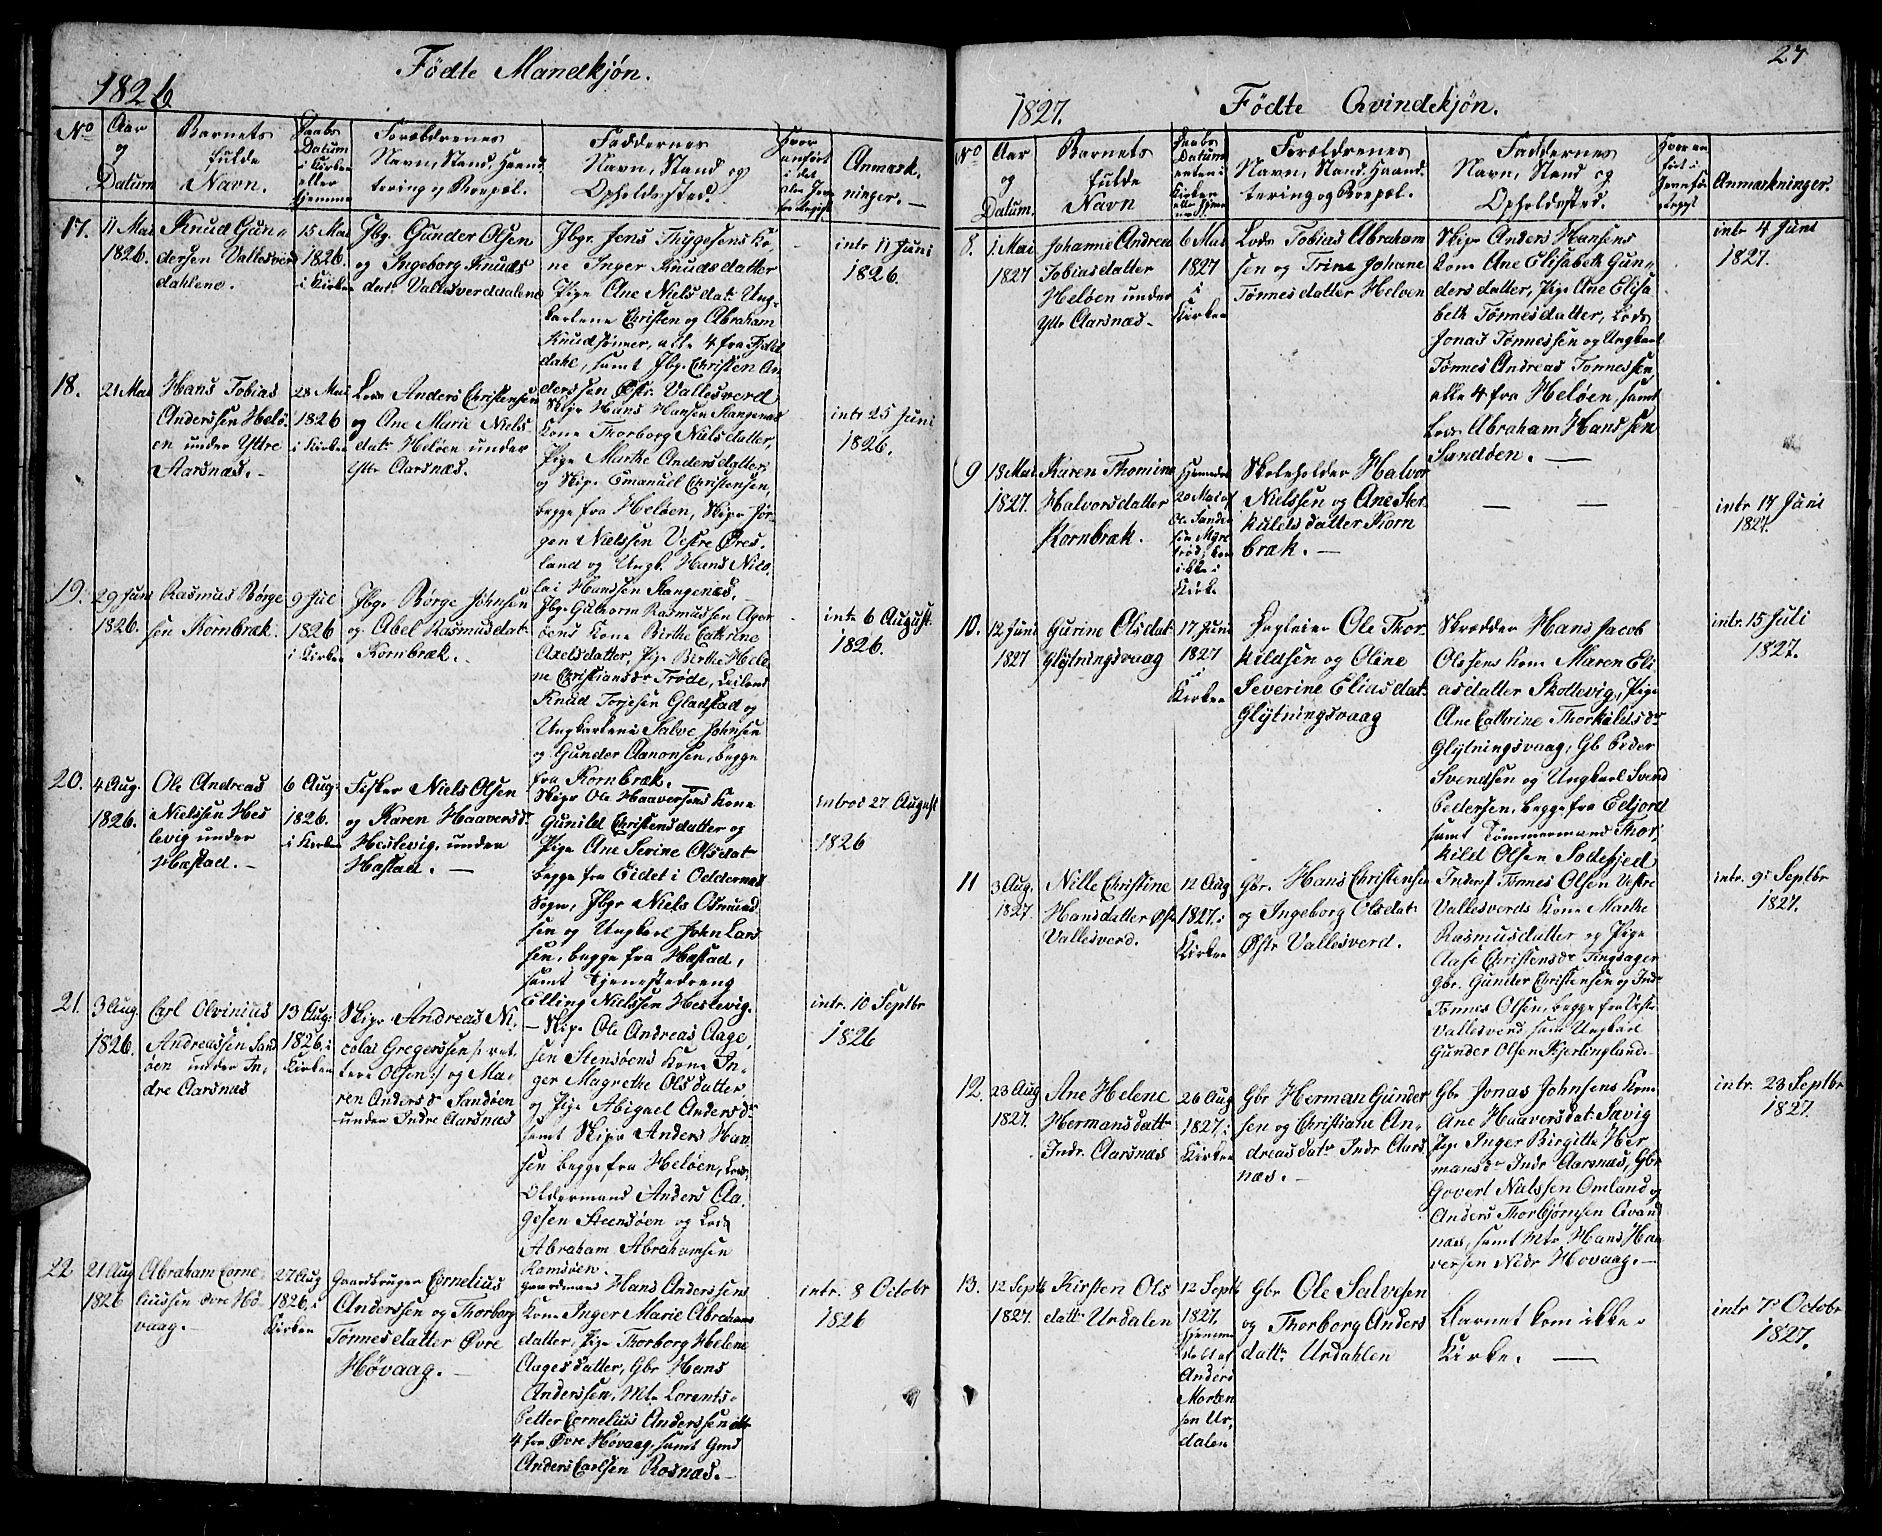 1826
Fødte Mandkjøn.
No
Aar
og
Datum
Barnets
fulde
Navn.
Daabs
Datum
i Kirken
eller
hjemme
Forældrenes
Navn, Stand, Haand
tering og Boepæl.
Faddernes
Navn, Stand og
Opholdssted.
Hvor
anført
i det
Anmærk
ninger.
17.
11 Mai
1826.
Knud Gun-
dersen Vallesverd
dahlene.
15 Mai
1826
i Kirken
Jbgr. Gunder Olsen
og Ingeborg Knuds
datr Vallesverdalene
Jbgr. Jens Thygesens Ko
ne Inger Knudsdatter
Pige Ane Nielsdatr Ung-
karlene Christen og Abraham
Knudsønner, alle 4 fra Fjeld
dahl, samt Jbgr Christen An
derssen Østr. Vallesverd
intr 11 Juni
1826.
18.
21 Mai
Hans Tobias
Anderssen Helø-
en under Yttre
Aarsnæs.
28 Mai
1826
i Kirken
Lods Anders Christensen
og Ane Marie Niels
datr Heløen under
Yttr Aarsnæs.
Skipr Hans Hansen Stangenæs
Kone Thorborg Nielsdatter,
Pige Marthe Andersdatter
og Skipr Emanuel Christensen,
begge fra Heløen, Skipr Jør-
gen Nielssen Vestre Øres-
land og Ungk. Hans Nico-
lai Hanssen Stangenæs.
intr 25 Juni
1826.
19.
29 Juni
1826.
Rasmus Børge
sen Kornbræk.
9 Jul
1826
i Kirken
Jbgr Børge Johnsen
og Abel Rasmusdatr
Kornbræk.
Jbgr Guthorm Rasmussen Ager
øens Kone Birthe Cathrine
Axelsdatter, Pige Birthe Hele
ne Christiansdr Trøde, Leilend
Knud Torjesen Gladstad og
Ungkarlene Salve Johnsen
og Gunder Aanonsen, begge
fra Kornbræk.
intr 6 August.
1826.
20.
4 Aug.
1826.
Ole Andreas
Nielssen Hes
levig under
Hæstad.
6 Aug.
1826.
i Kirken
Fisker Niels Olsen
og Karen Haaversdr
Heslevig, under
Hæstad.
Skipr Ole Haaversens Kone
Gunild Christensdatter og
Pige Ane Serine Olsdatr
begge fra Eidet i Oddernæs
Sogn, Jbgr Niels Osmund
sen og Ungkarl John Lars
sen, begge fra Hæstad,
samt Tjenestedreng
Elling Nielssen Heslevig.
introd 27 August
1826
21.
3 Aug.
1826.
Carl Olvinius
Andreassen Sand
øen under In-
dre Aarsnæs
13 Aug.
1826. i
Kirken
Skipr Andreas Ni-
colai Gregerssen /: ret
tere Olsen :/ og Ma-
ren Andersdr Sandøen
under Indre Aarsnæs
Skipr Ole Andreas Aage-
sen Stensøens Kone In-
ger Magrethe Olsdatter
og Pige Abigael Andersdr
samt Skipr Anders Han-
sen begge fra Heløen, Lods
Oldermand Anders Aa-
gesen Steensøen og Lods
Abraham Abrahamsen
Ramsøen.
intr. 10 Septbr
1826
22
21 Aug
1826
Abraham Corne-
liussen Øvre Hø-
vaag.
27 Aug
1826. i
Kirken
Gaardbruger Cornelius
Anderssen og Thorborg
Tønnesdatter Øvre
Høvaag.
Gaardmand Hans Anderssens
Kone Inger Marie Abrahams
datter, Pige Thorborg Helene
Aagesdatter, Gbr Hans
Anderssen, Mtr Lorents-
Petter Cornelius Anderssen alle
4 fra Øvre Høvaag, samt Gmd
Anders Carlsen Rosnæs.
intr. 8 Octobr
1826
27
1827.
Fødte Qvindekjøn.
No
Aar
og
Datum.
Barnets
fulde
Navn
Daabs
Datum
enten i
Kirken
eller hjem
Forældrenes
Navn, Stand, Haand
tering og Boepæl.
Faddernes
Navn, Stand og
Opholdssted.
Anmærkninger.
8.
1. Mai
1827
Johanne Andrea
Tobiasdatter
Heløen under
Yttr Aarsnæs.
6 Mai
1827
i
Kirken
Lods Tobias Abraham
sen og Trine Johane
Tønnesdatter Heløen
Skipr Anders Hansens
Kone Ane Elisabeth Gun-
dersdatter, Pige Ane Elisa
beth Tønnesdatter, Lods
Jonas Tønnessen og Ungkarl
Tønnes Andreas Tønnessen,
alle 4 fra Heløen, samt
Lods Abraham Hanssen
Sandøen.
intr 4 Juni
1827.
9
18 Mai
1827.
Karen Thomine
Halvorsdatter
Kornbræk.
Hjemmedøbt
20 Mai af
Ole Sande
sen Myre
kom
ikke i
Kirke
Skoleholder Halvor
Nielssen og Ane Ter
kildsdatter Korn
bræk.
intr 17 Juni
1827.
10.
12 Juni
1827
Gurine Olsdatr
Glytningsvaag
17 Juni
1827
i
Kirken
Ole Thor-
kildsen og Oline
Severine Eliasdatr
Glytningsvaag
Skrædder Hans Jacob
Olssens Kone Maren Eli
asdatter Skottevig, Pige
Ane Cathrine Thorkildsdr
Glytningsvaag, Gb Peder
Svendsen og Ungkarl Svend
Pedersen, begge fra Eeljord
samt Tømmermand Thor-
kild Olsen Sodefjed
intr. 15 Juli
1827.
11
3 Aug.
1827.
Nille Christine
Hansdatter Østr
Vallesverd.
12 Aug
1827. i
Kirken
Gbr. Hans Christensen
og Ingeborg Olsdatr
Østr Vallesverd.
Inderst Tønnes Olsen Vestre
Vallesverds Kone Marthe
Rasmusdatter og Pige
Aase Christensdr Tingsager
Gbr. Gunder Christensen og Indr
Tønnes Olsen, begge fra Vestr
Vallesverd samt Ungkarl
Gunder Olsen Kjerlingland.
intr. 9 Septbr
1827.
12.
23 Aug
1827.
Ane Helene
Hermansdattr
Indr. Aarsnæs
26 Aug
1827. i
Kirken
Gbr Herman Gunder
sen og Christiane An-
dreasdatr Indr Aars
næs.
Gbr Jonas Johnsens Kone
Ane Haaversdatr Sævig
Pige Inger Birgitte Her
mansdr Indr Aarsnæs, Gbr
Govert Nielssen Omland og
Anders Thorbjørnsen Qvand
næs, samt Mtr Hans Haa
versen Nedr Hovaag.
intr. 23 Septbr
1827.
13.
12 Septb
1827.
Kirsten Ols
dattr Urdalen
12 Septb
1827.
hjemme
døbt af
Anders
Morten
sen Ur-
dalen
Gbr Ole Salvesen
og Thorborg Anders
dattr Urdahlen
Barnet kom ikke
Kirke.
intr 7 Octobr
1827.